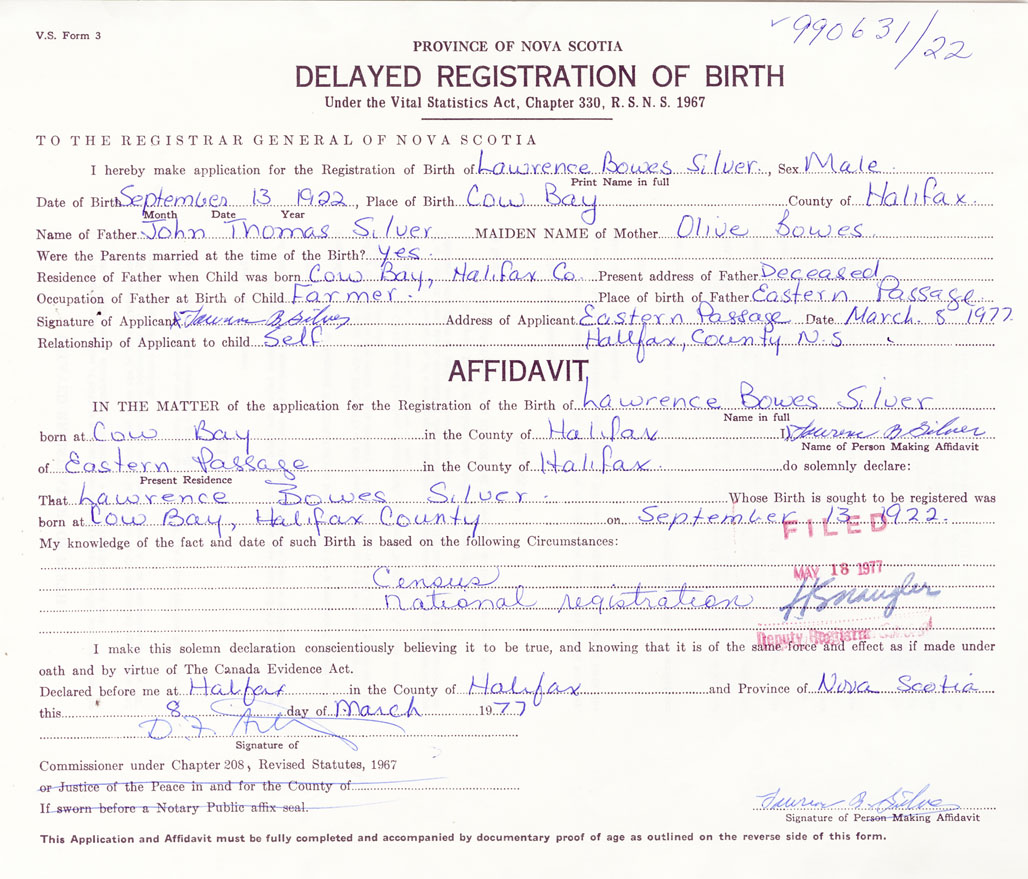 V.S. Form 3
990631/22
PROVINCE OF NOVA SCOTIA
DELAYED REGISTRATION OF BIRTH
Under the Vital Statistics Act, Chapter 330, R.S.N.S. 1967
TO THE REGISTRAR GENERAL OF NOVA SCOTIA
I hereby make application for the Registration of Birth of Lawrence Bowes Silver, Sex Male
Print Name in full
Date of Birth September 13 1922, Place of Birth Cow Bay County of Halifax
Month Date Year
Name of Father John Thomas Silver MAIDEN NAME of Mother Olive Bowes
Were the Parents married at the time of the Birth? Yes
Residence of Father when Child was born Cow Bay, Halifax Co. Present address of Father Deceased
Occupation of Father at Birth of Child Farmer Place of birth of Father Eastern Passage
Signature of Applicant Lawrence B Silver Address of Applicant Eastern Passage Date March 8 1977
Relationship of Applicant to child Self Halifax, County N.S
AFFIDAVIT
IN THE MATTER of the application for the Registration of the Birth of Lawrence Bowes Silver
Name in full
born at Cow Bay in the County of Halifax I, Lawrence B Silver
Name of Person Making Affidavit
of Eastern Passage in the County of Halifax do solemnly declare:
Present Residence
That Lawrence Bowes Silver Whose Birth is sought to be registered was
born at Cow Bay, Halifax County on September 13 1922.
FILED
My knowledge of the fact and date of such Birth is based on the following Circumstances:
MAY 18 1977
Census
National registration
Deputy Registrar General
I make this solemn declaration conscientiously believing it to be true, and knowing that it is of the same force and effect as if made under
oath and by virtue of The Canada Evidence Act.
Declared before me at Halifax in the County of Halifax and Province of Nova Scotia
this 8 day of March 1977
Signature of
Commissioner under Chapter 208, Revised Statutes, 1967
or Justice of the Peace in and for the County of
If sworn before a Notary Public affix seal.
Lawrence B. Silver
Signature of Person Making Affidavit
This Application and Affidavit must be fully completed and accompanied by documentary proof of age as outlined on the reverse side of this form.